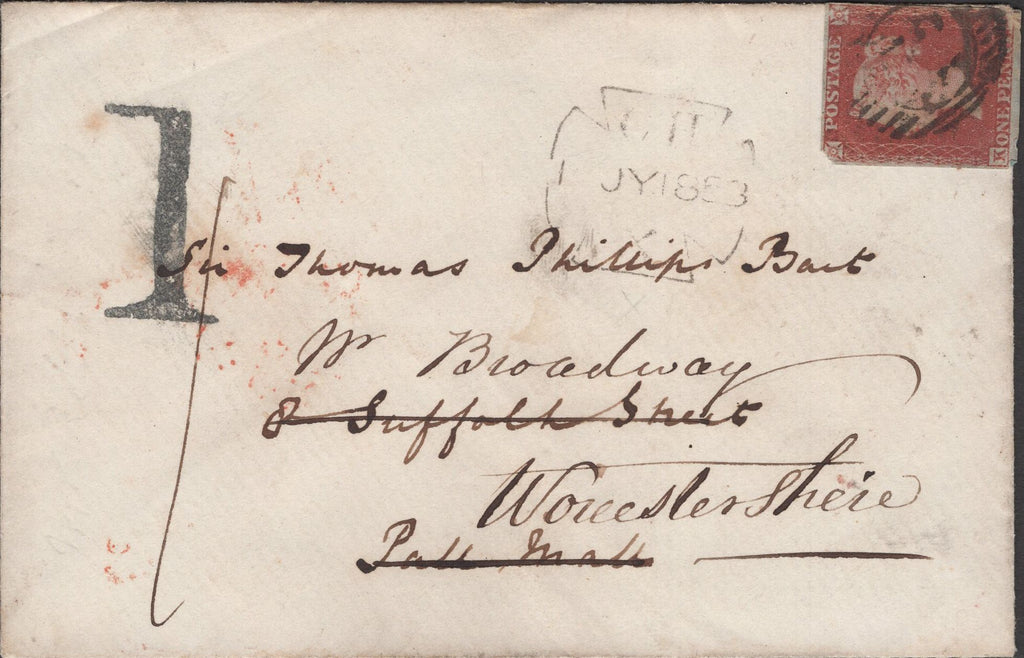 POSTAGE
ONE PENNY
1
JY 1853
Sir Thomas Phillips Bart
Nr Broadway
8 Suffolk Street
Worcestershire
Pall Mall